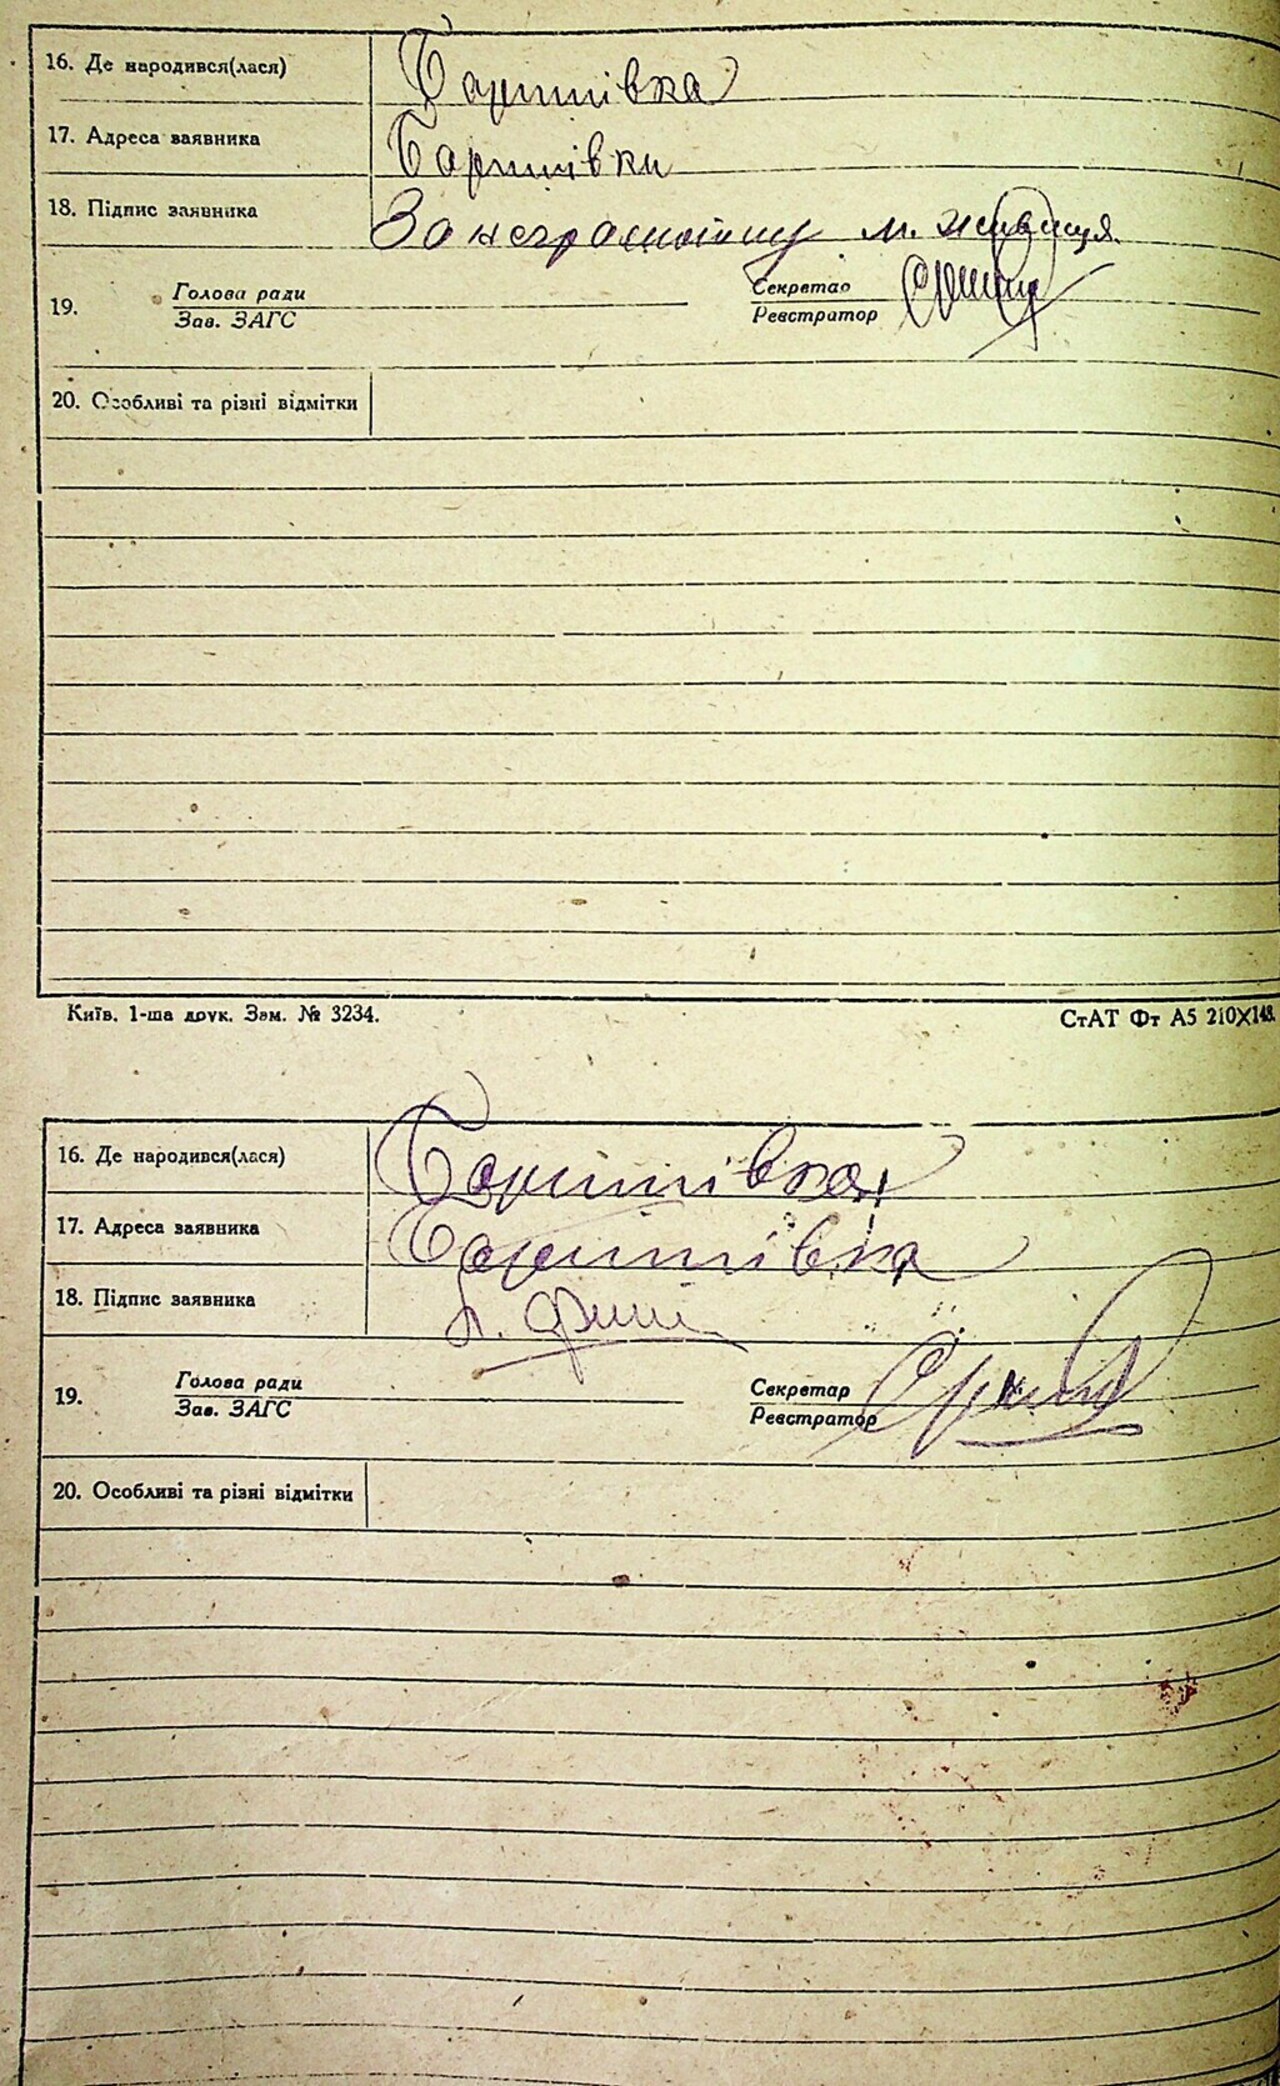 16. Де народився(лася) Баришівка
17. Адреса заявника Баришівка
18. Підпис заявника За неграмотну
19. Голова ради Секретар
Зав. ЗАГС Реєстратор
20. Особливі та різні відмітки
Київ. 1-ша друк. Зам. № 3234. СтАТ Фт А5 210X148.
16. Де народився(лася) Баришівка
17. Адреса заявника Баришівка
18. Підпис заявника
19. Голова ради Секретар
Зав. ЗАГС Реєстратор
20. Особливі та різні відмітки